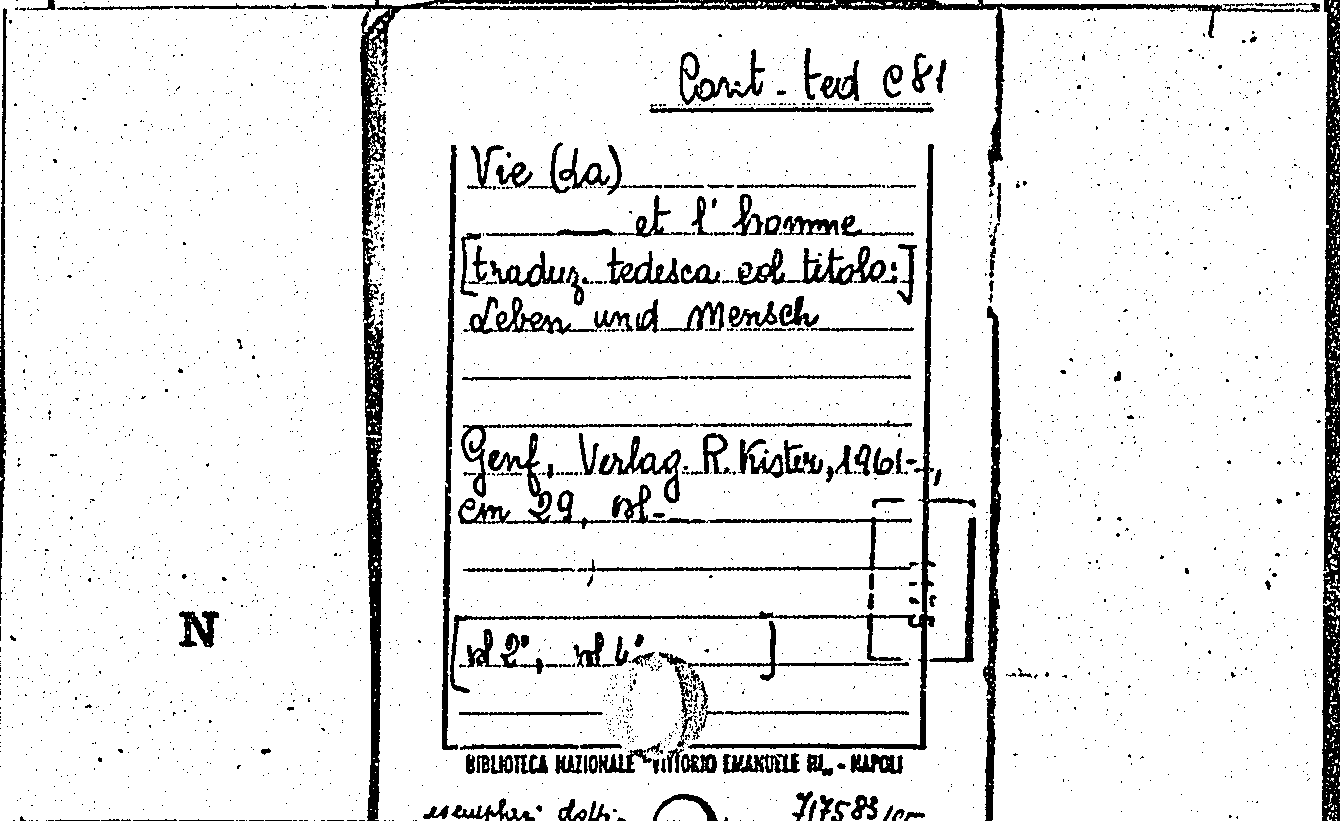 Cont. ted C 81
Vie (La)
— et l' homme
[traduz. tedesca col titolo:]
Leben und Mensch
Genf, Verlag R. Kister, 1961-,
cm 29, vol-
N
[vol 2°, vol 4° ]
BIBLIOTECA NAZIONALE "VITTORIO EMANUELE III" - NAPOLI
esemplari dopp.
717583/